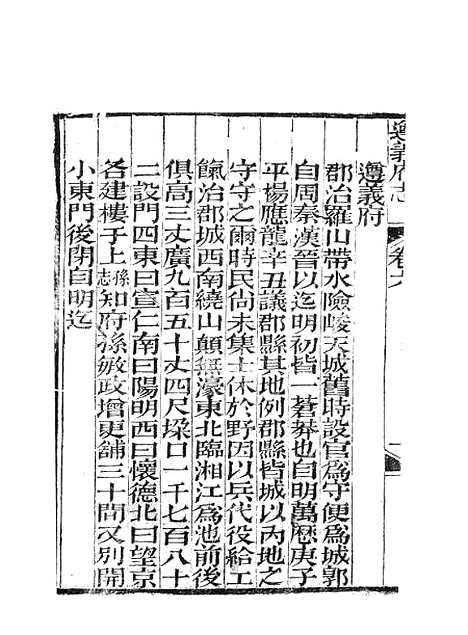 遵義府志
卷六
一
遵義府
郡治羅山帶水險峻天城舊時設官爲守便爲城郭
自周秦漢晉以迄明初皆一蒼莽也自明萬歷庚子
平楊應龍辛丑議郡縣其地例郡縣皆城以內地之
守守之爾時民尚未集士休於野因以兵代役給工
餼治郡城西南繞山顛無濠東北臨湘江爲池前後
俱高三丈廣九百五十丈四尺垜口一千七百八十
二設門四東曰宣仁南曰陽明西曰懷德北曰望京
各建樓于上孫志知府孫敏政增更舖三十間又別開
小東門後閉自明迄